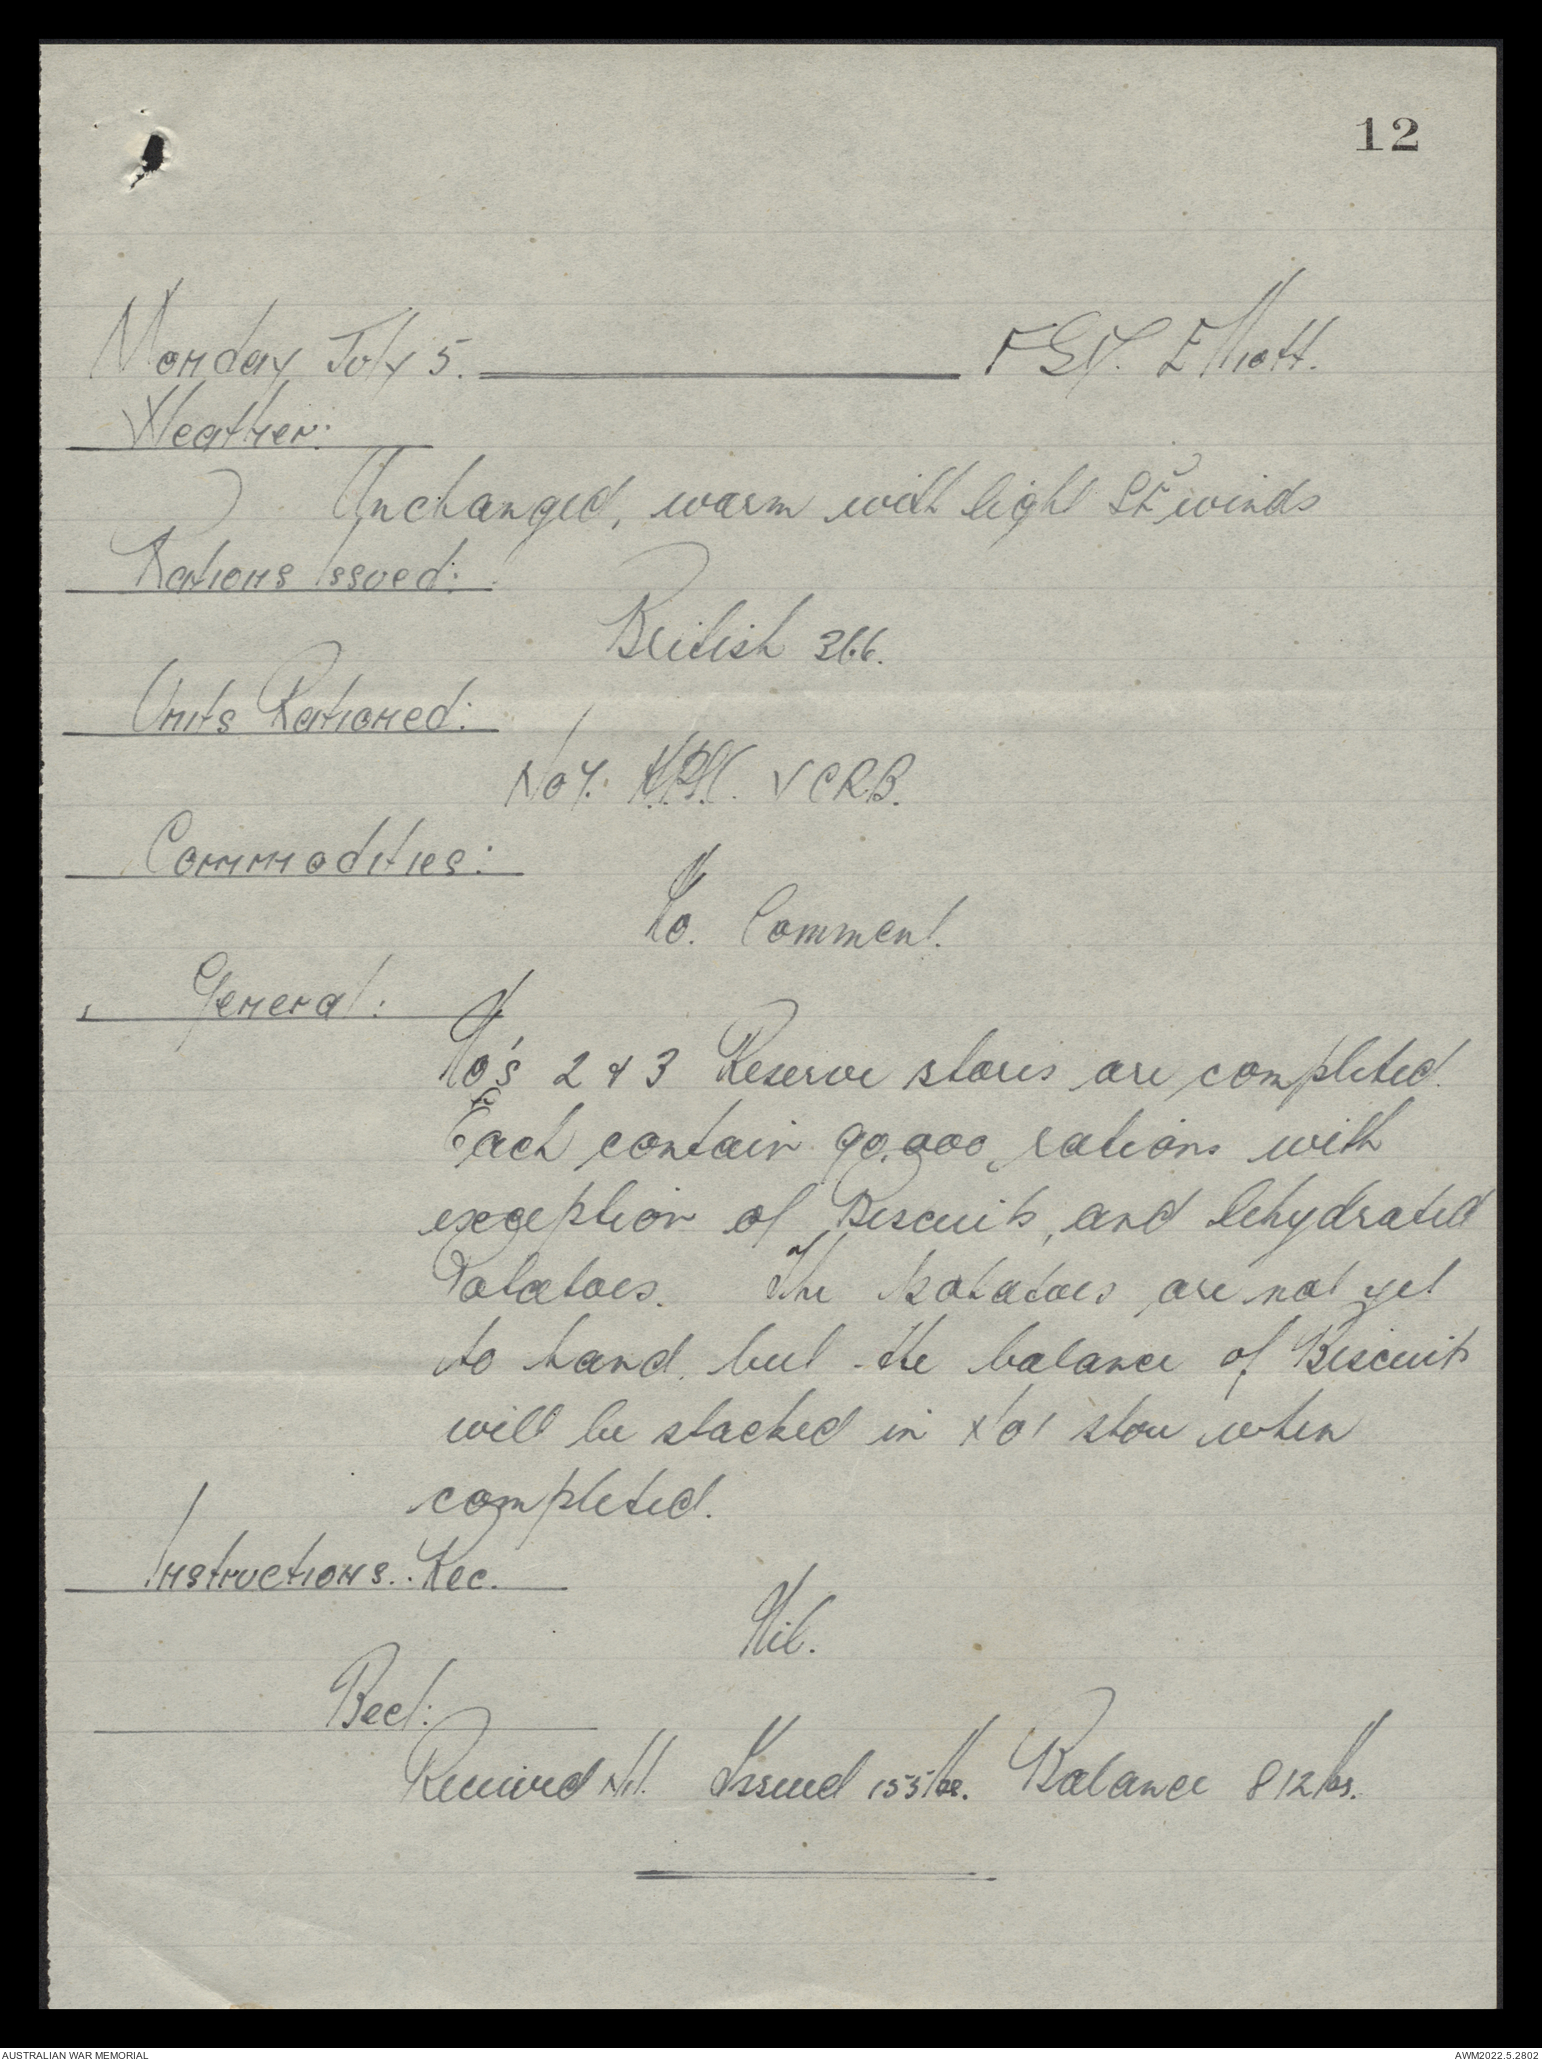 12
Monday July 5. F Elliott.
Weather:
Unchanged, warm with light SE winds
Rations Issued:
British 366.
Units Rationed:
V C.R.B.
Commodities:
No. Comment.
General:
No's 2 & 3 Reserve stores are completed.
Each contain 90,000 rations with
exception of Biscuits, and dehydrated
Potatoes. The potatoes are not yet
to hand, but the balance of Biscuits
will be stacked in No 1 store when
completed.
Instructions. Rec.
Nil.
Beef:
Received Nil. Issued 155 lbs. Balance 812 lbs.
AUSTRALIAN WAR MEMORIAL
AWM2022.5.2802